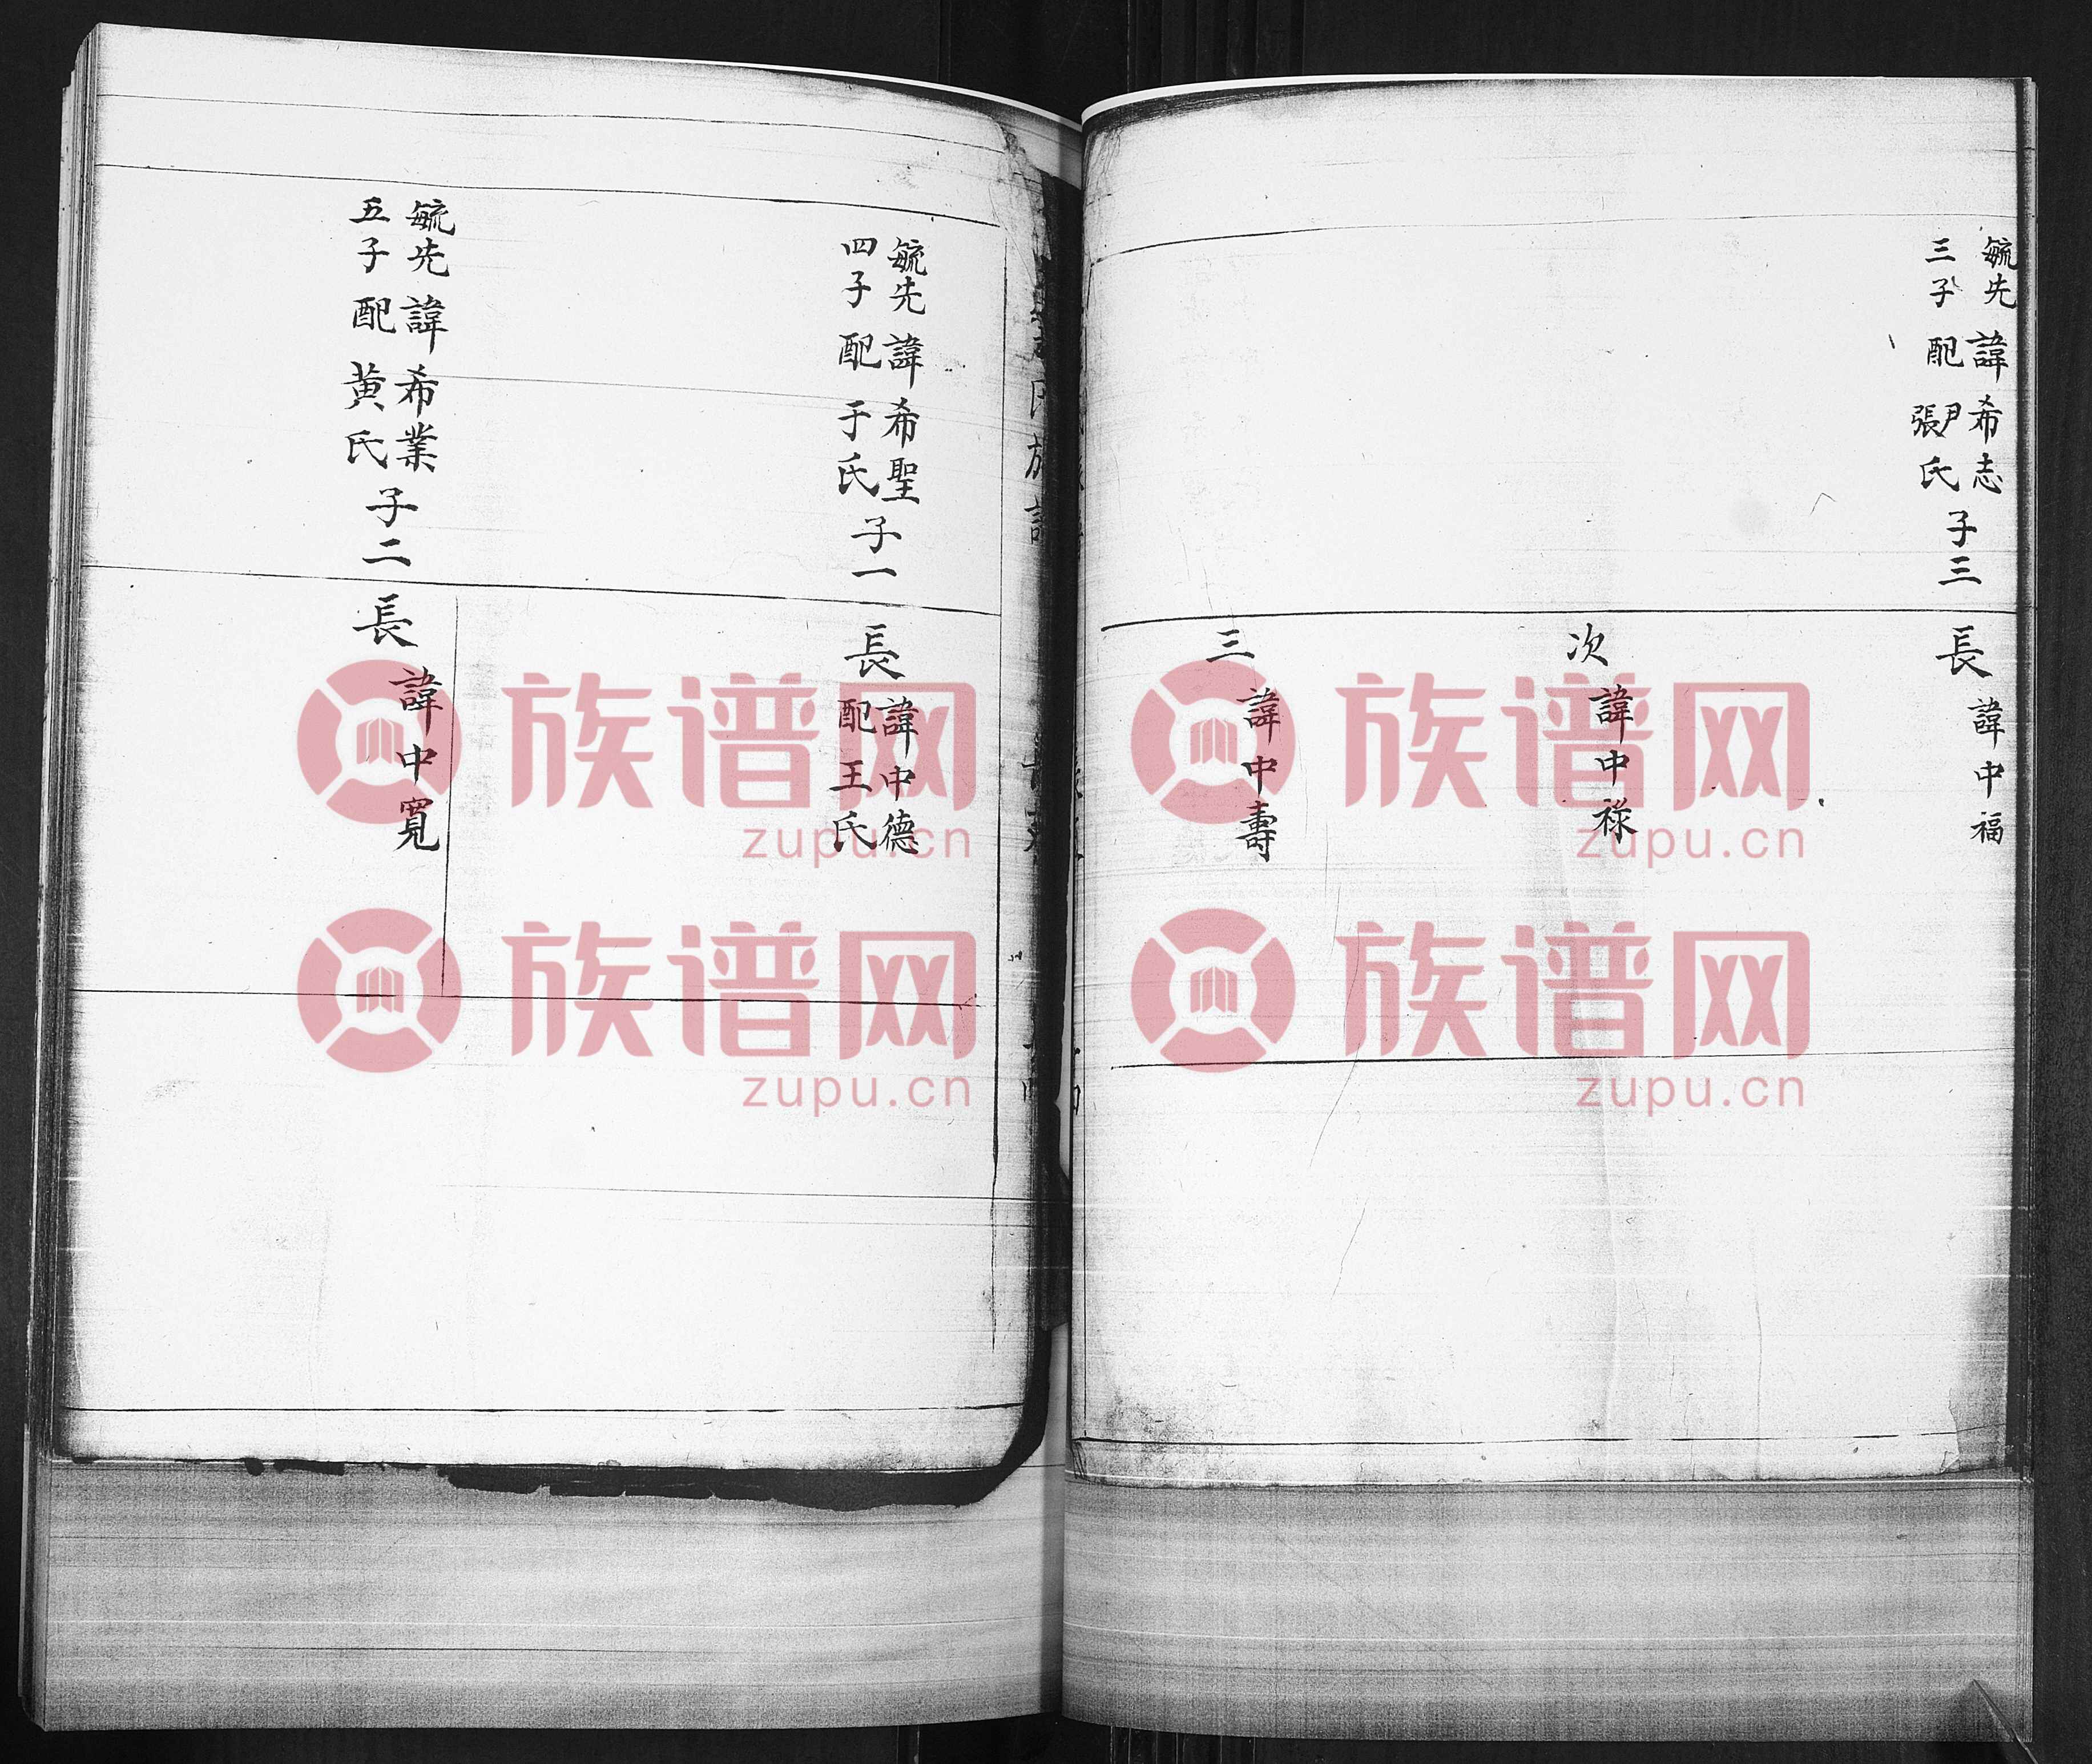 毓先
三子
諱希志
配尹張氏
子三
長
諱中福
次
諱中祿
三
諱中壽
毓先
四子
諱希聖
配于氏
子一
長
諱中德
配王氏
毓先
五子
諱希業
配黄氏
子二
長
諱中寬
氏族譜
族谱网
zupu.cn
族谱网
zupu.cn
族谱网
zupu.cn
族谱网
zupu.cn